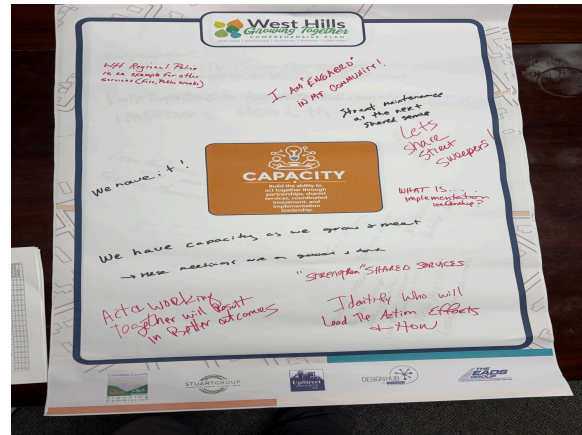 West Hills
Growing Together
COMPREHENSIVE PLAN
WH Regional Police
is an example for other
services (Fire, Public Works)
I AM "ENGAGED"
IN MY COMMUNITY!
Street maintenance
as the next
shared
Lets
share
Street
Sweepers!
We have it!
CAPACITY
Build the ability to
act together through
partnerships, shared
services, coordinated
investment, and
implementation
leadership.
WHAT IS....
Implementation
leadership?
We have capacity as we grow & meet
→ these meetings are a good
"Strengthen" SHARED SERVICES
working
Together will Result
in Better outcomes
Identify who will
Lead The Action Efforts
+ How
STUARTGROUP
UpStreet
DESIGN HUB
THE
EADS
GROUP